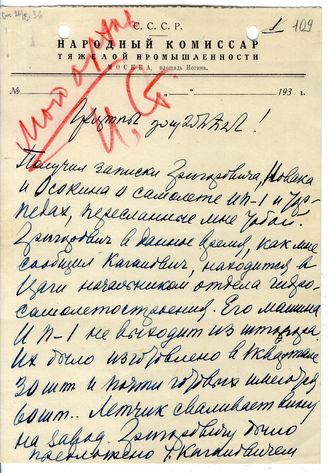 1 109
С. С. С. Р.
НАРОДНЫЙ КОМИССАР
ТЯЖЕЛОЙ ПРОМЫШЛЕННОСТИ
МОСКВА, площадь Ногина.
№ „ “ 193 г.
Мой архив
И. Ст
Получил записки Григоровича, Новака
и Осокина о самолете ИП-1 и Тор-
педах, пересланные мне Тобой.
Григорович в данное время, как мне
сообщил Каганович, находится в
Цаги начальником отдела гидро-
самолетостроения. Его машина
ИП-1 не выходит из штопора.
Их было изготовлено в
30 шт и почти готовых имеется
60 шт.. Летчик сваливает вину
на завод. Григоровичу было
предложено т. Кагановичем